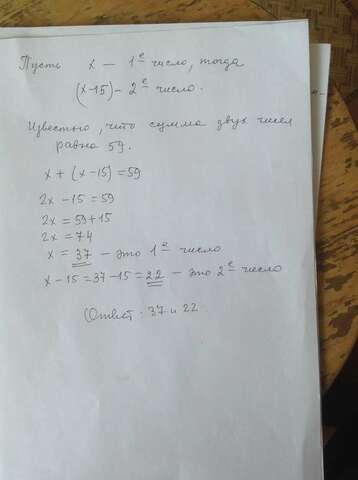 Пусть x — 1е число, тогда
(x-15) - 2е число.
Известно, что сумма двух чисел
равна 59.
x + (x - 15) = 59
2x - 15 = 59
2x = 59 + 15
2x = 74
x = 37 - это 1е число
x - 15 = 37 - 15 = 22 - это 2е число
Ответ: 37 и 22.